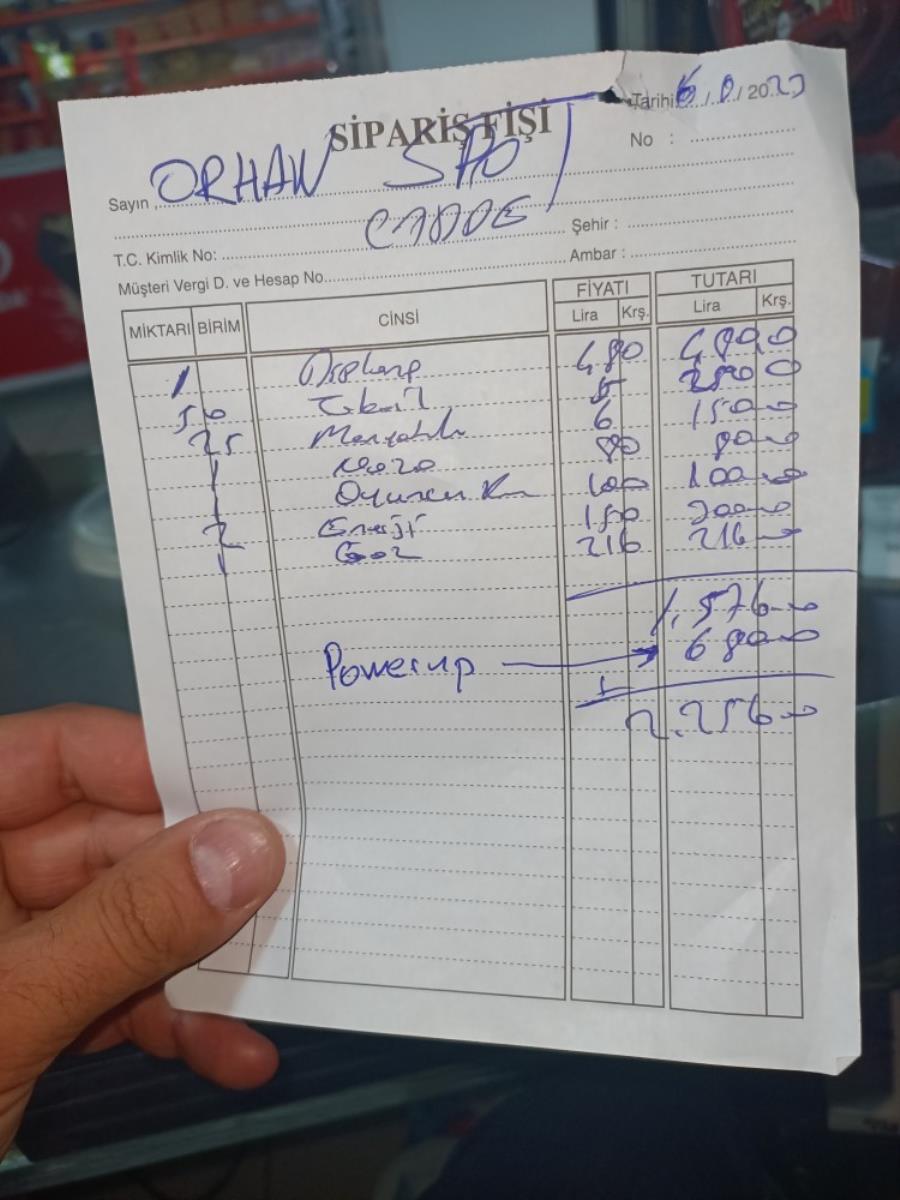 SİPARİŞ FİŞİ
Tarihi 6/8/2023
No :
Sayın ORHAN SPOT
CADDE
T.C. Kimlik No: Şehir :
Müşteri Vergi D. ve Hesap No. Ambar :
MİKTARI BİRİM CİNSİ FİYATI TUTARI
Lira Krş. Lira Krş.
1 480 480,0
50 5 250 0
25 6 150 0
1 80 80 00
1 Oyuncu 100 100 00
2 Enerji 150 300 00
1 216 216 00
1.576 00
Powerup 680 00
2.256 00